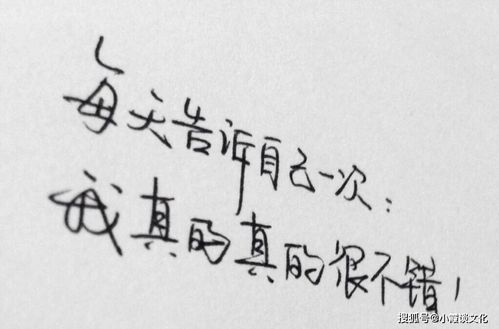 每天告诉自己一次：
我真的真的很不错！
搜狐号@小霞谈文化